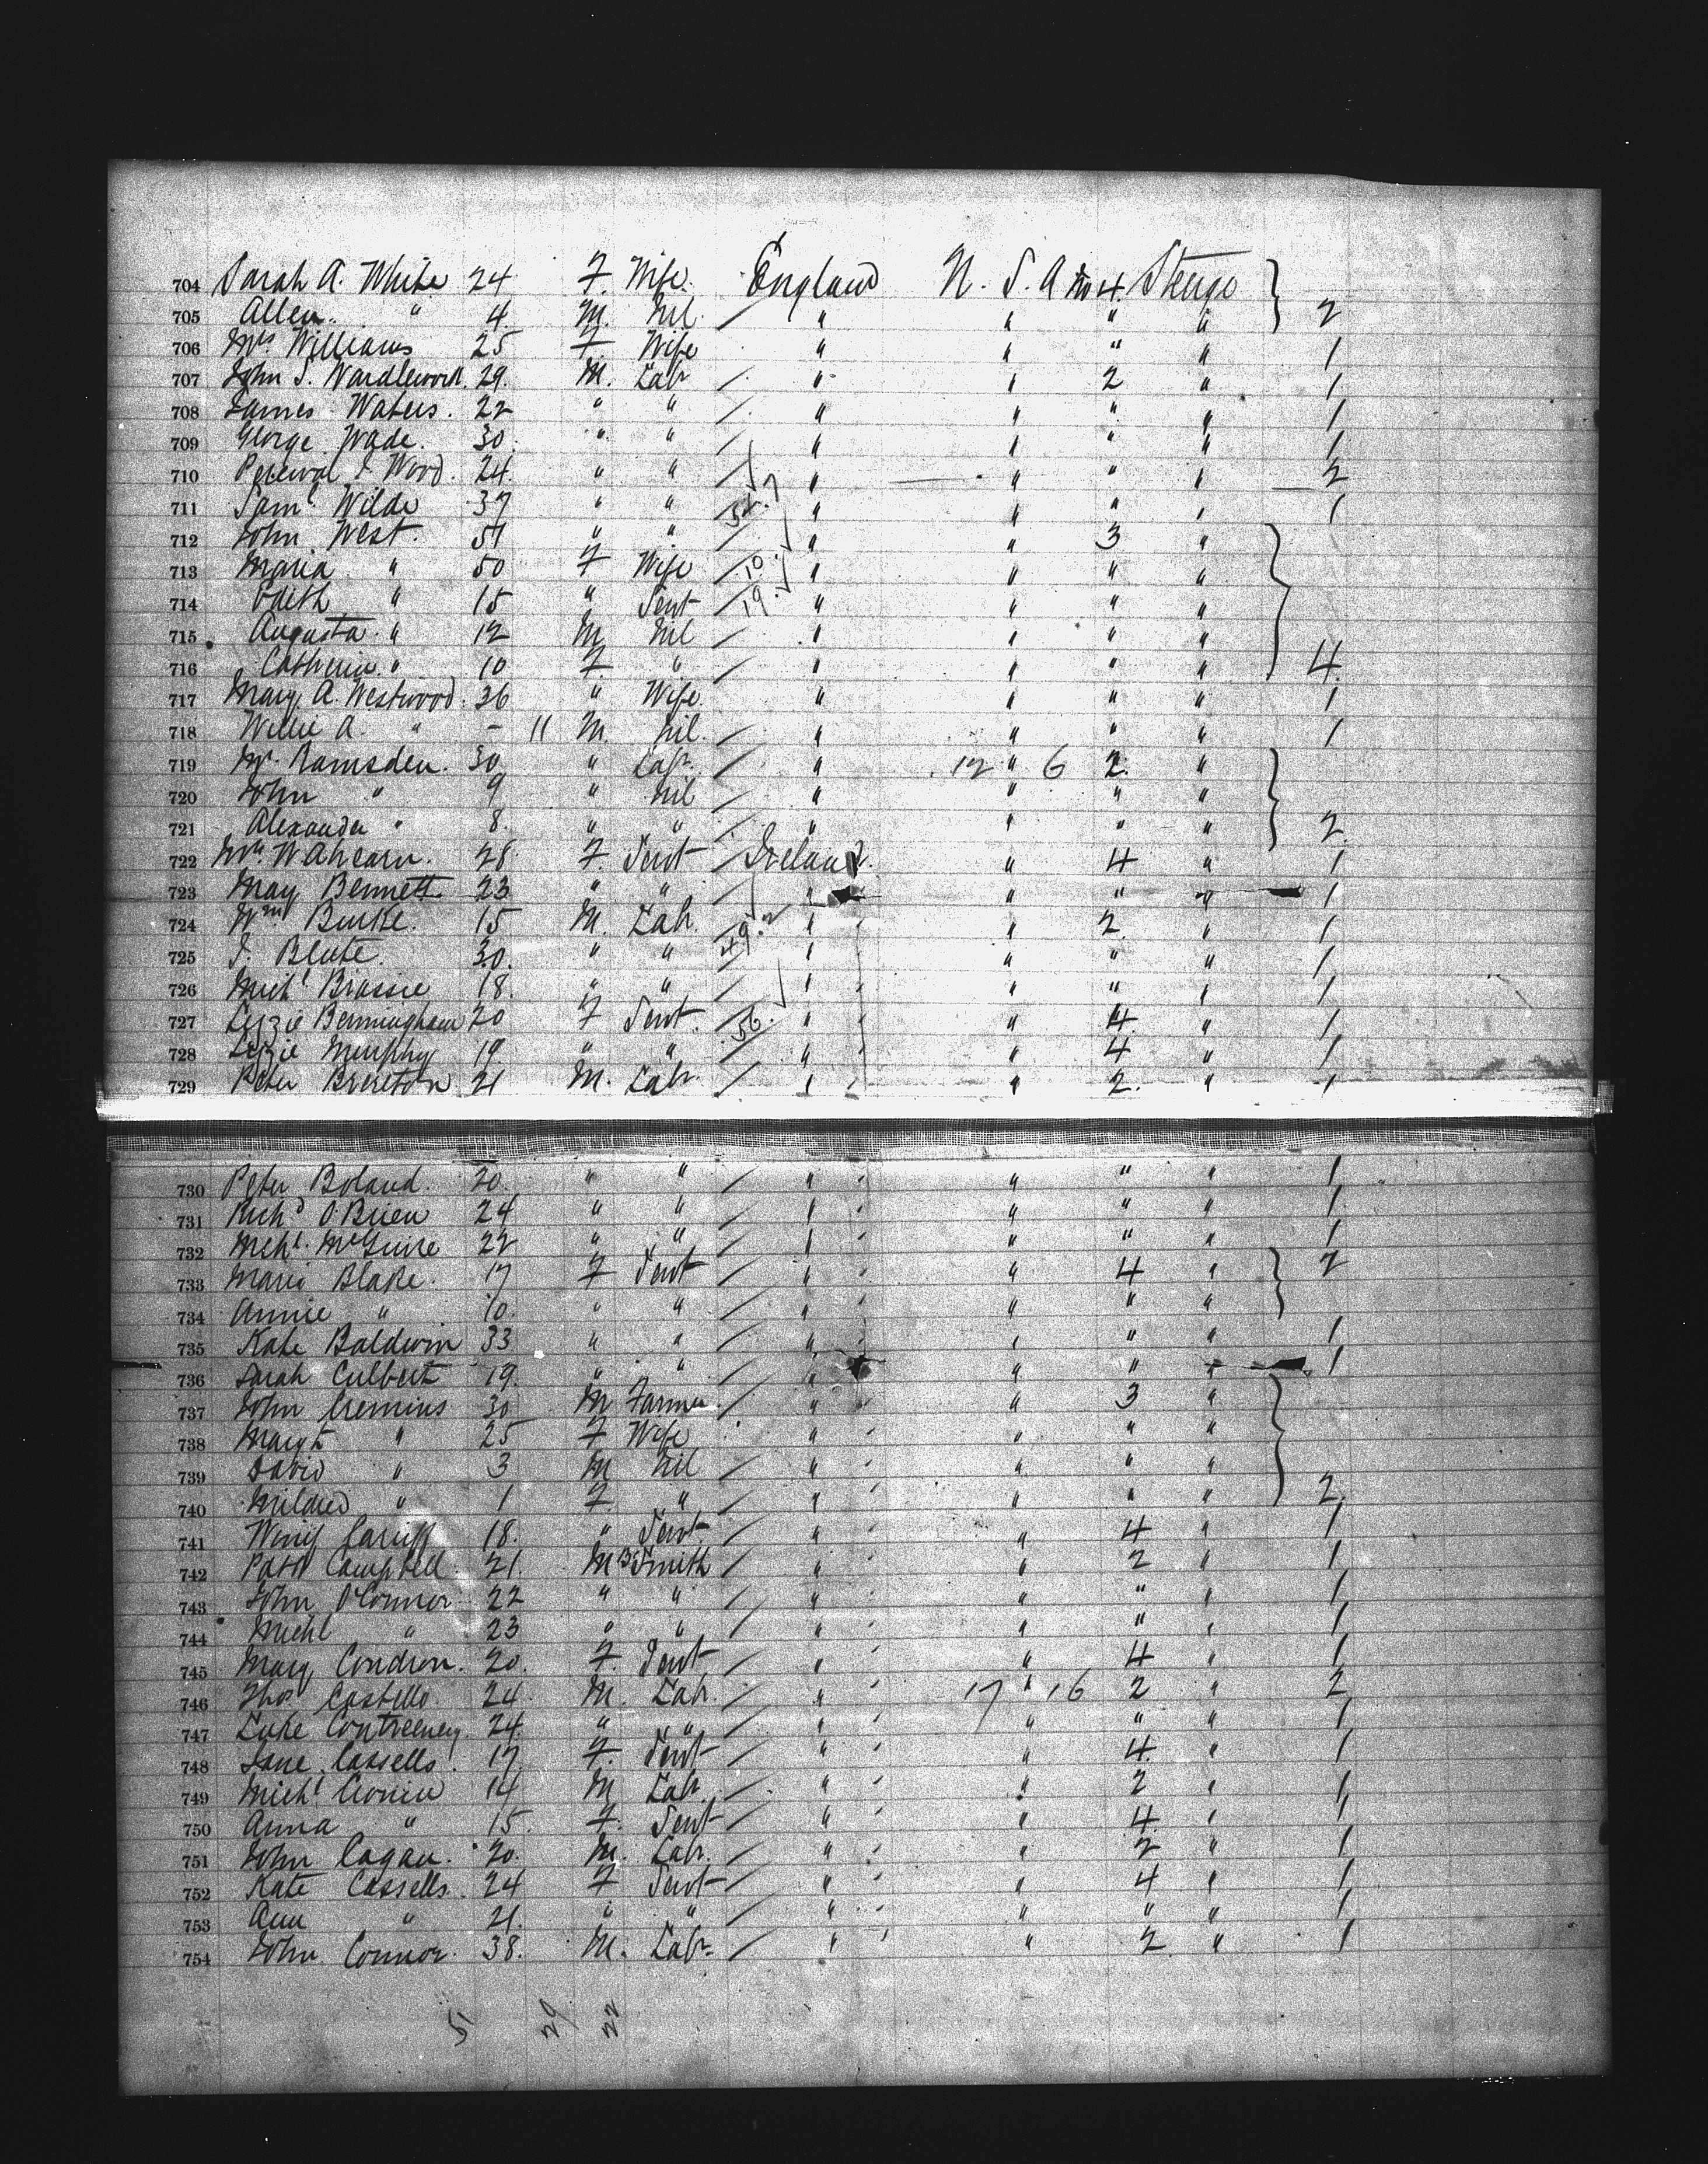 704 Sarah A. White 24 F. Wife England U. S. A. No 4 Steerge
705 Allen " 4 M. Nil / " " " " 2
706 Mrs Williams 25 F Wife " " " " 1
707 John S. Wardleword. 29. M. Labr / " " 2 " 1
708 James Waters. 22 " " / " " " " 1
709 George Wade. 30 " " / " " " " 1
710 Percival J. Wood. 24. " " / " " " " 2
711 Saml Wilde 37 " " / " " " " 1
712 John West. 51 " " / " " 3 "
713 Maria " 50 F Wife / 10 " " " "
714 Edith " 15 " Servt / 19 " " " "
715 Augusta " 12 M Nil / " " " "
716 Catherine " 10 F. " / " " " " 4.
717 Mary A. Westwood. 36 " Wife. " " " " 1
718 Willie A. " - 11 M. Nil. / " " " " 1
719 Mr. Ramsden. 30 " Labr. / " 12 " 6 2. "
720 John " 9 " Nil / " " " "
721 Alexander " 8. " " / " " " " 2.
722 Mrs. W Ahearn. 28. F Servt / Ireland. " 4 " 1
723 May Bennett 23 " " / " " " " 1
724 Wm Burke. 15 M. Labr. / " " 2 " 1
725 J. Blute. 30. " " / " " " " 1
726 Michl Brassie 18. " " / " " " " 1
727 Lizzie Bermingham 20 F Servt. / 56. " " 4. " 1
728 Lizzie Murphy 19 " " / " " 4 " 1
729 Peter Brereton 21 M. Labr. / " " 2. " 1
730 Peter Boland. 20. " " / " " " " 1
731 Richd O'Brien 24 " " / " " " " 1
732 Michl. McGuire 22 " " / " " " " 1
733 Maria Blake. 17 F Servt / " " 4 " 2
734 Annie " 10. " " / " " " "
735 Kate Baldwin 33 " " / " " " " 1
736 Sarah Culbert 19. " " / " " " " 1
737 John Cremins 30 M Farmer / " " 3 "
738 Margt " 25 F Wife " " " "
739 David " 3 M Nil / " " " "
740 Mildred " 1 F. " / " " " " 2
741 18. " Servt / " " 4 " 1
742 Patk Campbell. 21. M B'Smith / " " 2 " 1
743 John O'Connor 22 " " / " " " " 1
744 Michl " 23 " " / " " " " 1
745 Mary Condron. 20. F. Servt / " " 4 " 1
746 Thos Costello 24. M. Labr. / " 17 " 16 2 " 2
747 Luke 24. " " / " " " " 1
748 Jane Cassells. 17 F. Servt / " " 4. " 1
749 Michl Cronin 14 M Labr. / " " 2 " 1
750 Anna " 15. F. Servt / " " 4. " 1
751 John Cagan. 20. M. Labr. / " " 2 " 1
752 Kate Cassells. 24 F Servt / " " 4 " 1
753 Ann " 21. " " / " " " " 1
754 John Connor. 38. M. Labr. / " " 2. " 1
51 29 22